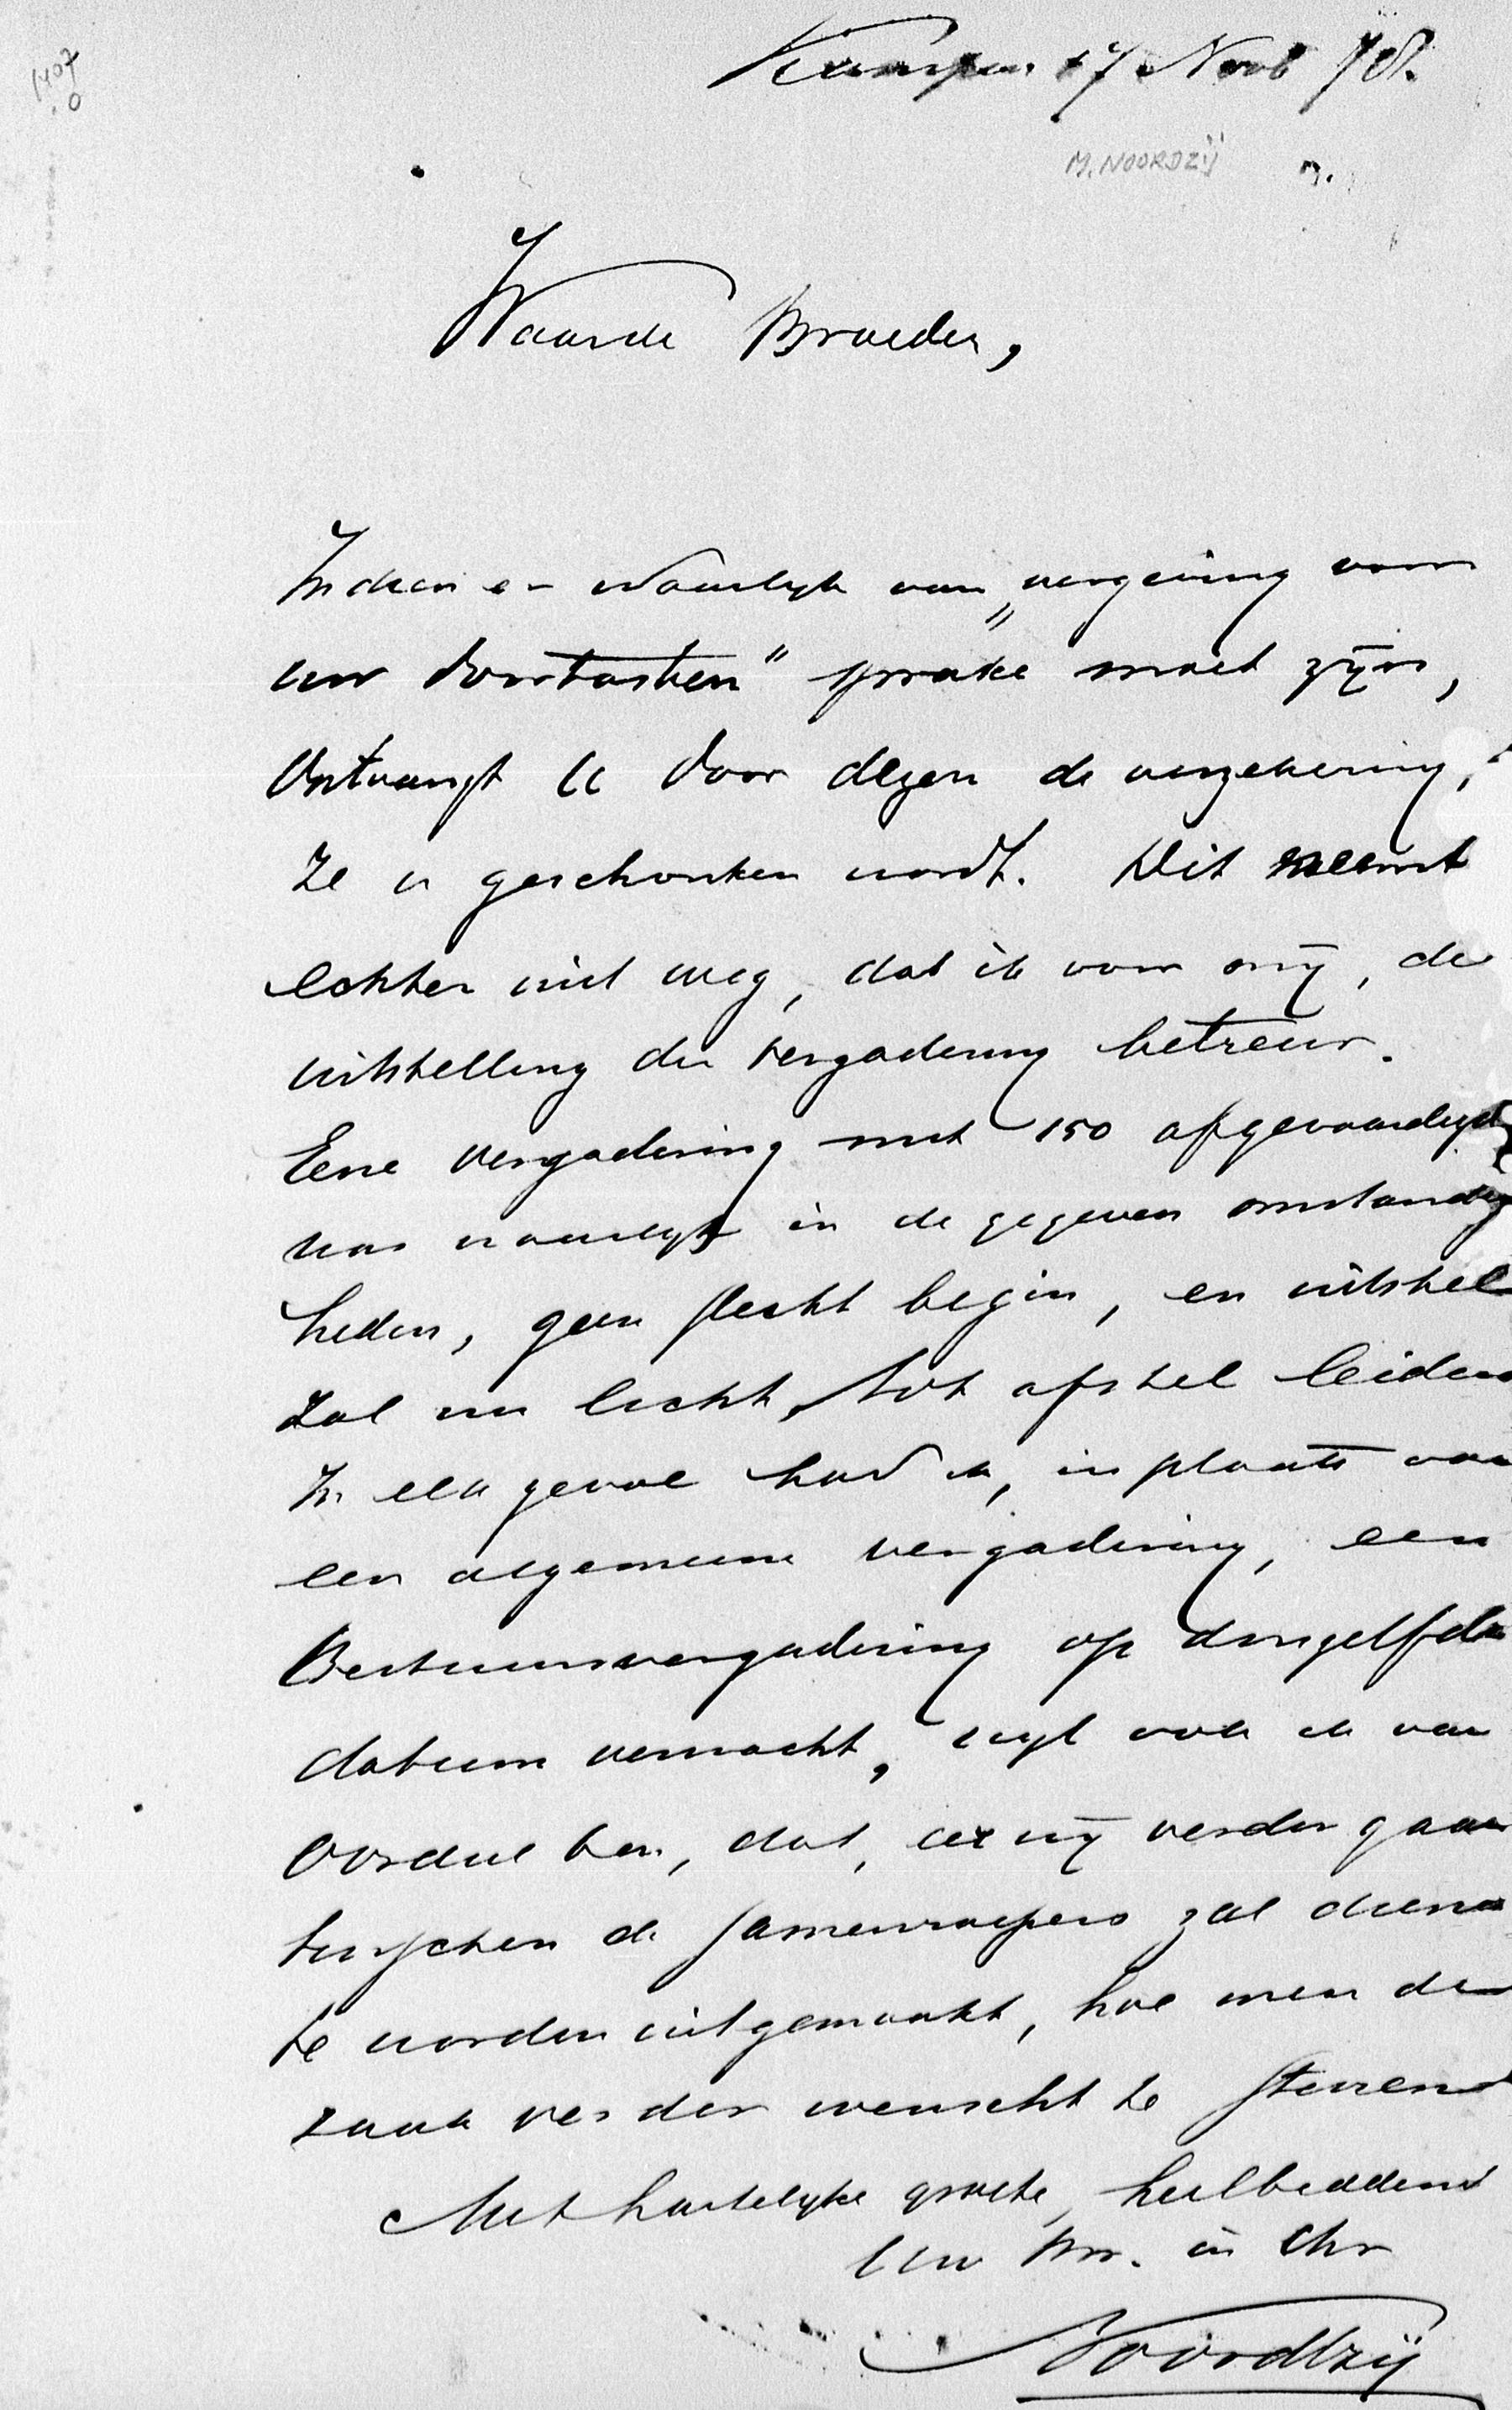 1407
Kampen 17 Novb 78.
M. NOORDZIJ
Waarde Broeder,
Indien er waarlyk van „vergeving voor
uw doortasten" sprake moet zijn,
Ontvangt U door dezen de verzekering,
ze u geschonken wordt. Dit neemt
echter niet weg, dat ik voor mij, de
uitstelling der vergadering betreur.
Eene vergadering met 150 afgevaardigd
was waarlyk in de gegeven omstandig
heden, geen slecht begin, en uitstel
zal nu licht tot afstel leiden
In elk geval had ik, in plaats van
een algemeene vergadering, een
Bestuursvergadering op dengelfden
datum verwacht, wyl ook ik van
oordeel ben, dat, eer wij verder gaan
tusschen de samenroepers zal dienen
te worden uitgemaakt, hoe men de
zaak verder wenscht te sturen
Met hartelyke groete, heilbiddend
Uw Br. in Chr
Noordtzij